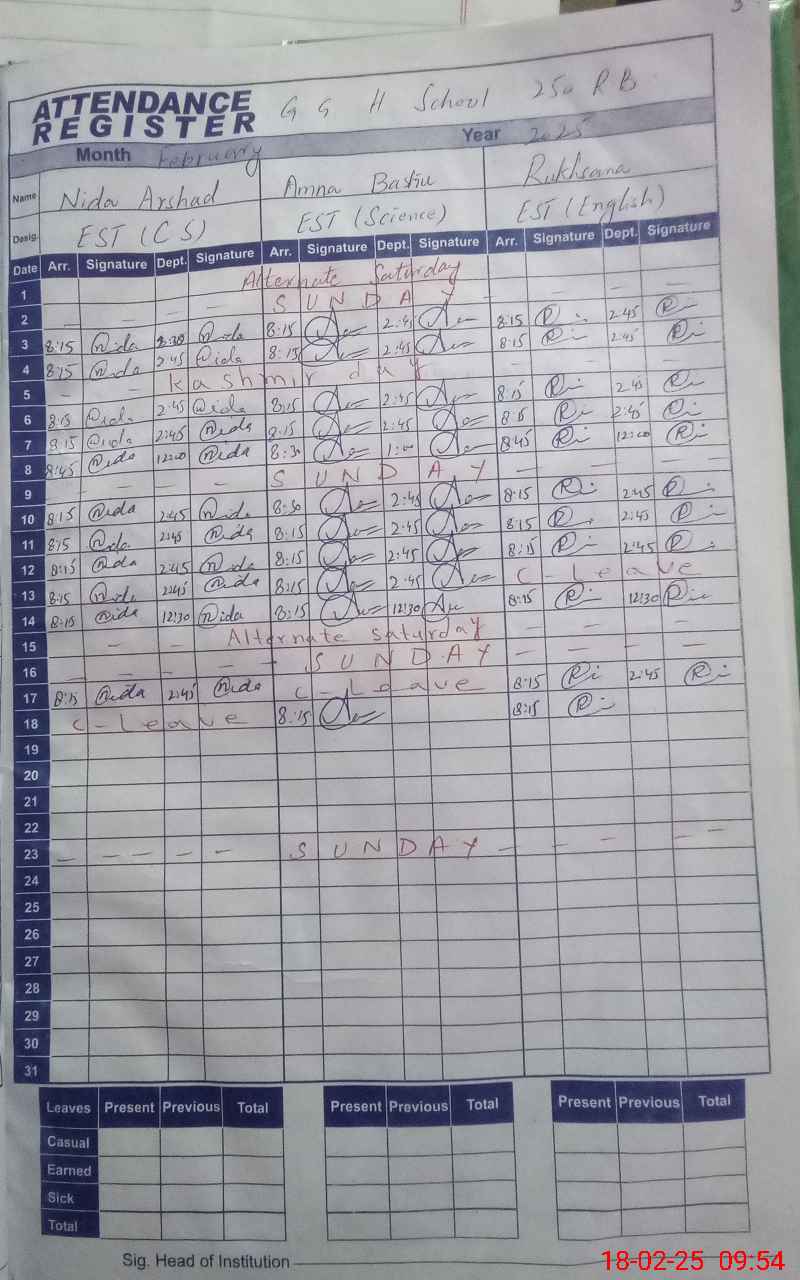 3
ATTENDANCE REGISTER G G H School 250 RB
Month February Year 2025
Name Nida Arshad Amna Rukhsana
Desig. EST (CS) EST (Science) EST (English)
Date Arr. Signature Dept. Signature Arr. Signature Dept. Signature Arr. Signature Dept. Signature
1 Alternate Saturday
2 S U N D A Y
3 8:15 Nida Nida 8:15 2:45 8:15 2:45
4 8:15 Nida 2:45 Nida 8:15 2:45 8:15 2:45
5 Kashmir day
6 8:15 Nida 2:45 Nida 8:15 2:45 8:15 2:45
7 8:15 Nida 2:45 Nida 8:15 2:45 8:15 2:45
8 8:45 Nida 12:00 Nida 8:30 1:00 8:45 12:00
9 S U N D A Y
10 8:15 Nida 2:45 Nida 8:30 2:45 8:15 2:45
11 8:15 Nida 2:45 Nida 8:15 2:45 8:15 2:45
12 8:15 Nida 2:45 Nida 8:15 2:45 8:15 2:45
13 8:15 Nida 2:45 Nida 8:15 2:45 C-Leave
14 8:15 Nida 12:30 Nida 8:15 12:30 8:15 12:30
15 Alternate Saturday
16 S U N D A Y
17 8:15 Nida 2:45 Nida C-Leave 8:15 2:45
18 C-Leave 8:15 8:15
19
20
21
22
23 S U N D A Y
24
25
26
27
28
29
30
31
Leaves Present Previous Total Present Previous Total Present Previous Total
Casual
Earned
Sick
Total
Sig. Head of Institution
18-02-25 09:54